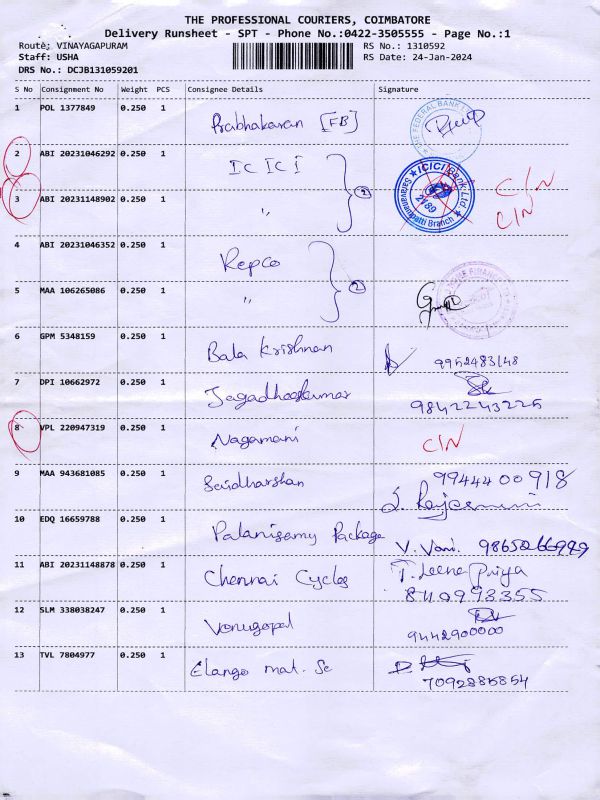 THE PROFESSIONAL COURIERS, COIMBATORE
Delivery Runsheet - SPT - Phone No.:0422-3505555 - Page No.:1
Route; VINAYAGAPURAM RS No.: 1310592
Staff: USHA RS Date: 24-Jan-2024
DRS No.: DCJB131059201
S No Consignment No Weight PCS Consignee Details Signature
1 POL 1377849 0.250 1 Prabhakaran [FB] THE FEDERAL BANK LTD
2 ABI 20231046292 0.250 1 ICICI C/N
3 ABI 20231148902 0.250 1 " 2 ICICI Bank Ltd Branch C/N
4 ABI 20231046352 0.250 1 Repco
5 MAA 106265086 0.250 1 " 2
6 GPM 5348159 0.250 1 Bala Krishnan 9952483148
7 DPI 10662972 0.250 1 Jagadheeskumar 9842243225
8 VPL 220947319 0.250 1 Nagamani C/N
9 MAA 943681085 0.250 1 Saidharshan 9944400918
10 EDQ 16659788 0.250 1 Palanisamy Package V. Vani.
11 ABI 20231148878 0.250 1 Chennai Cycles T. Leena Priya
840993355
12 SLM 338038247 0.250 1 Venugopal
9442900000
13 TVL 7804977 0.250 1 Elango mat. Sc
7092885854